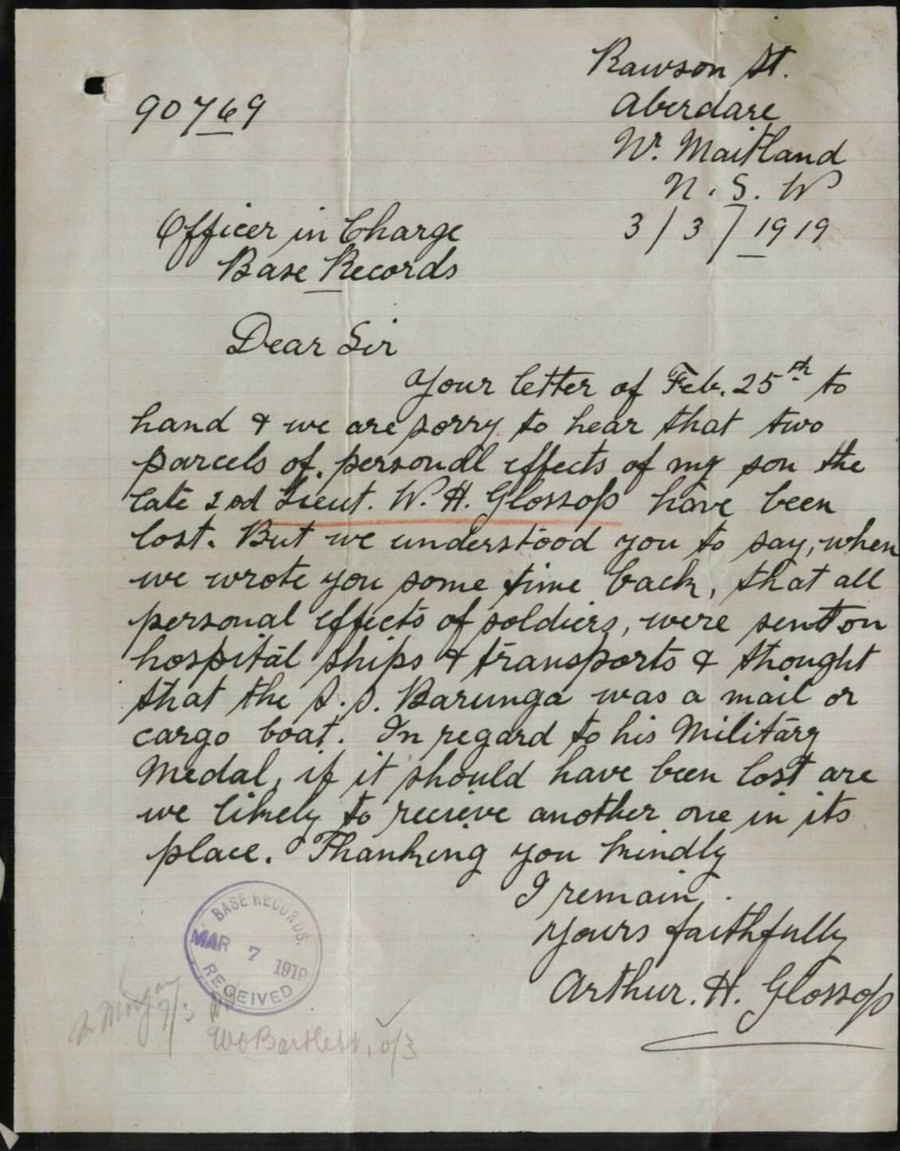 Rawson St.
90769
Aberdare
Wr. Maitland
N. S. W
3/3/1919
Officer in Charge
Base Records
Dear Sir
Your letter of Feb. 25th to
hand & we are sorry to hear that two
parcels of personal effects of my son the
late 2nd Lieut. W. H. Glossop have been
lost. But we understood you to say, when
we wrote you some time back, that all
personal effects of soldiers, were sent on
hospital ships & transports & thought
that the S.S. Barunga was a mail or
cargo boat. In regard to his Military
Medal, if it should have been lost are
we likely to recieve another one in its
place. Thanking you kindly
I remain.
Yours faithfully
Arthur. H. Glossop
BASE RECORDS.
MAR 7 1919
RECEIVED
7/3
WO Bartlett,